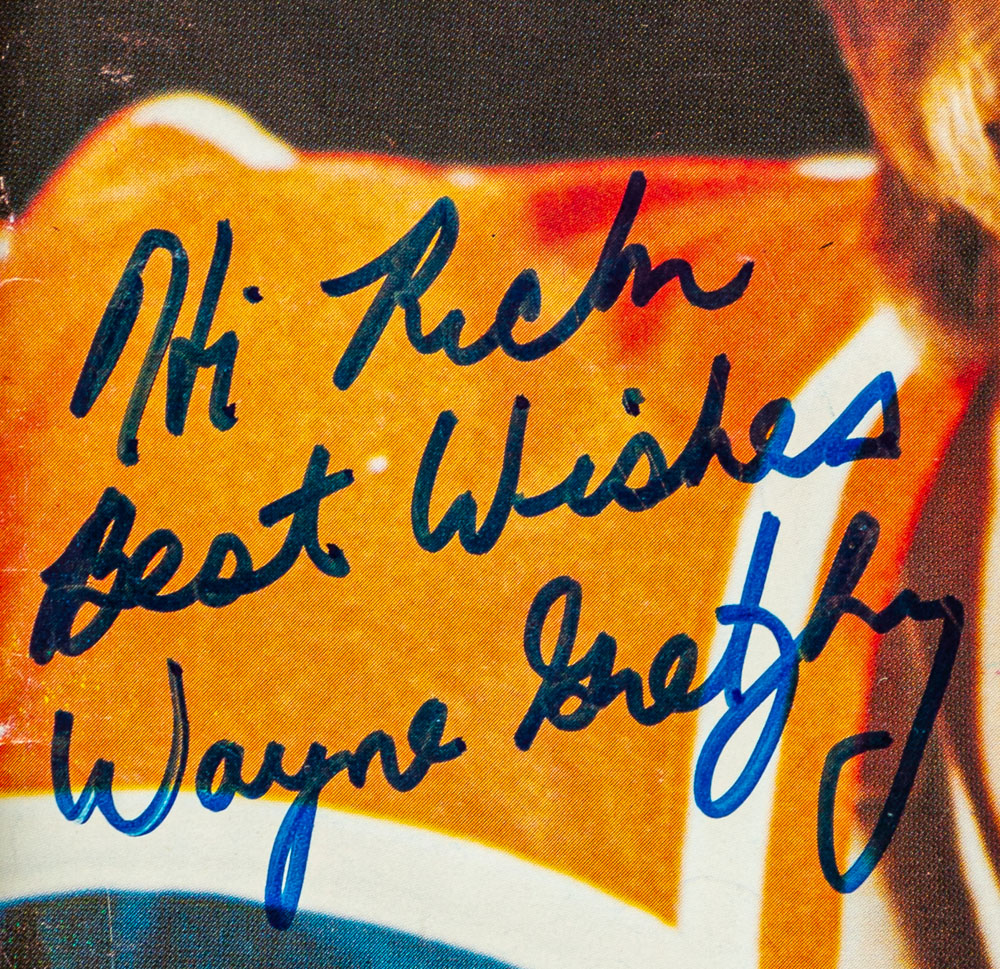 Hi Rich
Best Wishes
Wayne Gretzky